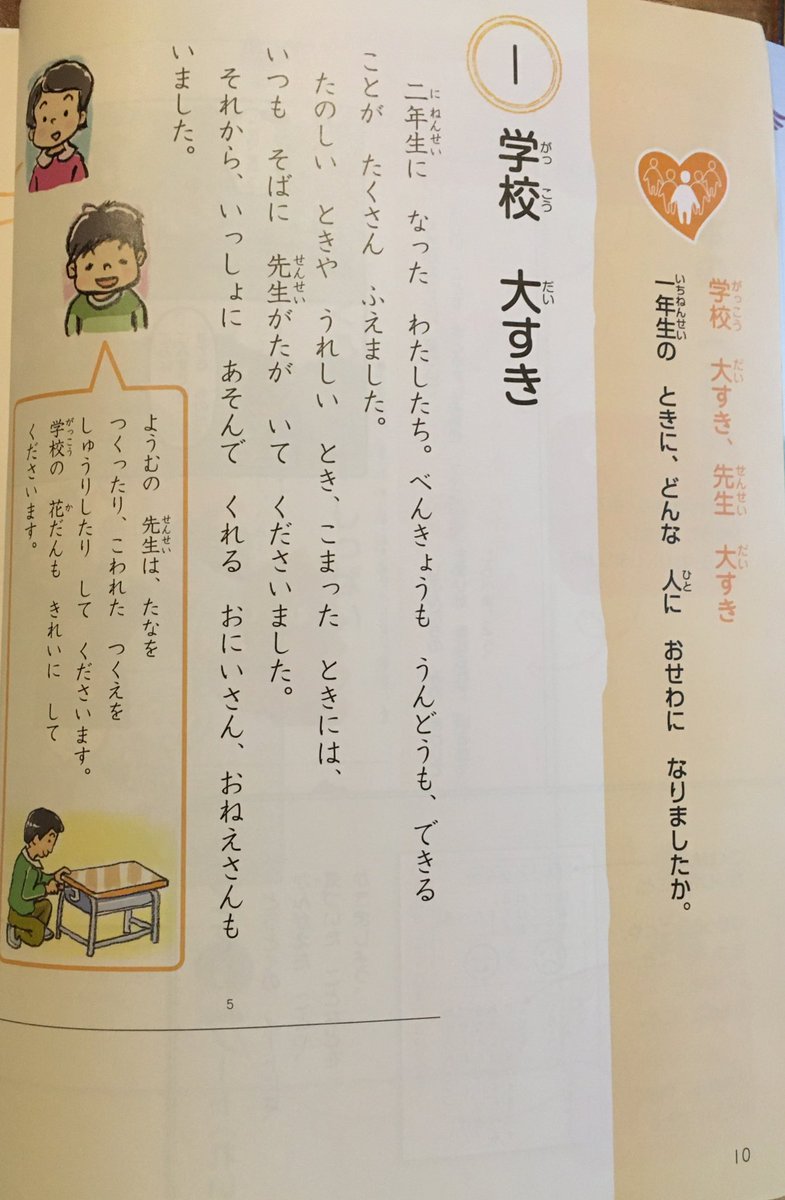 学校 大すき、先生 大すき
一年生の ときに、どんな 人に おせわに なりましたか。
1 学校 大すき
二年生に なった わたしたち。べんきょうも うんどうも、できる
ことが たくさん ふえました。
たのしい ときや うれしい とき、こまった ときには、
いつも そばに 先生がたが いて くださいました。
それから、いっしょに あそんで くれる おにいさん、おねえさんも
いました。
ようむの 先生は、たなを
つくったり、こわれた つくえを
しゅうりしたり して くださいます。
学校の 花だんも きれいに して
くださいます。
5
10